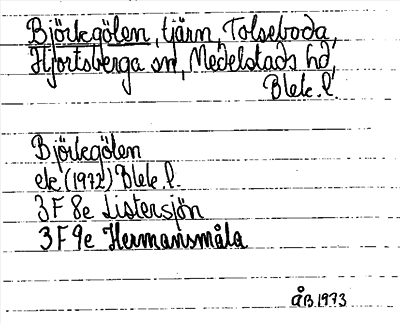 Björkgölen, tjärn, Tolseboda,
Hjortsberga sn, Medelstads hd,
Blek. l.
Björkgölen
ek (1972) Blek. l.
3F 8e Listersjön
3F 9e Hermansmåla
ÅB 1973